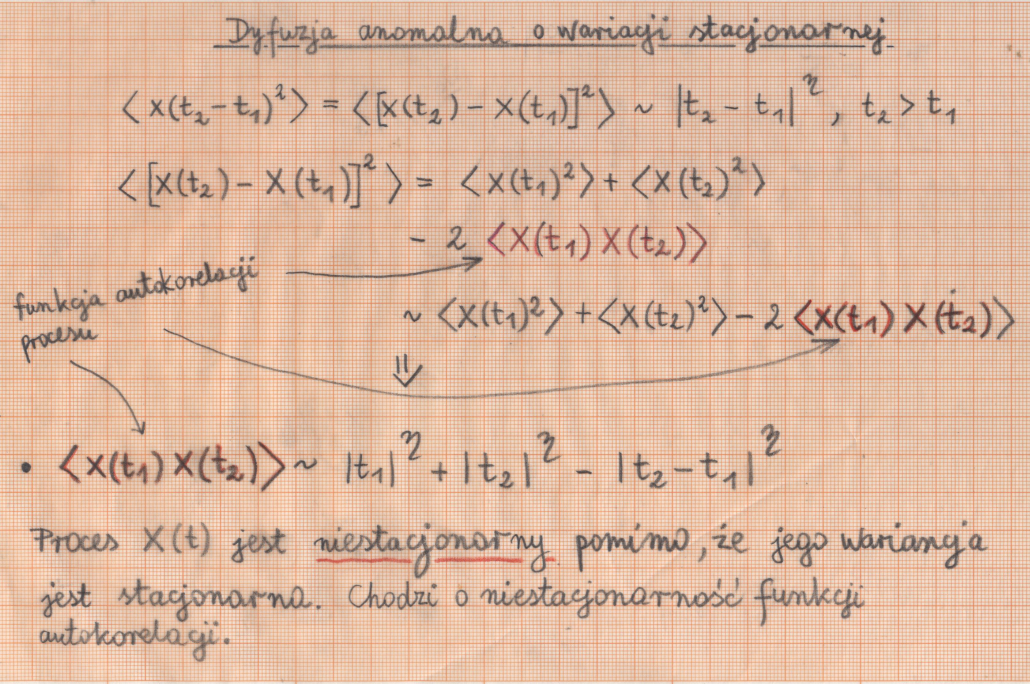 Dyfuzja anomalna o wariacji stacjonarnej
⟨x(t₂-t₁)²⟩ = ⟨[x(t₂) - x(t₁)]²⟩ ~ |t₂ - t₁|^η, t₂ > t₁
⟨[x(t₂) - X(t₁)]²⟩ = ⟨x(t₁)²⟩ + ⟨X(t₂)²⟩
- 2 ⟨X(t₁) X(t₂)⟩
funkcja autokorelacji
procesu
~ ⟨X(t₁)²⟩ + ⟨X(t₂)²⟩ - 2 ⟨X(t₁) X(t₂)⟩
⇓
• ⟨X(t₁) X(t₂)⟩ ~ |t₁|^η + |t₂|^η - |t₂ - t₁|^η
Proces X(t) jest niestacjonarny pomimo, że jego wariancja
jest stacjonarna. Chodzi o niestacjonarność funkcji
autokorelacji.